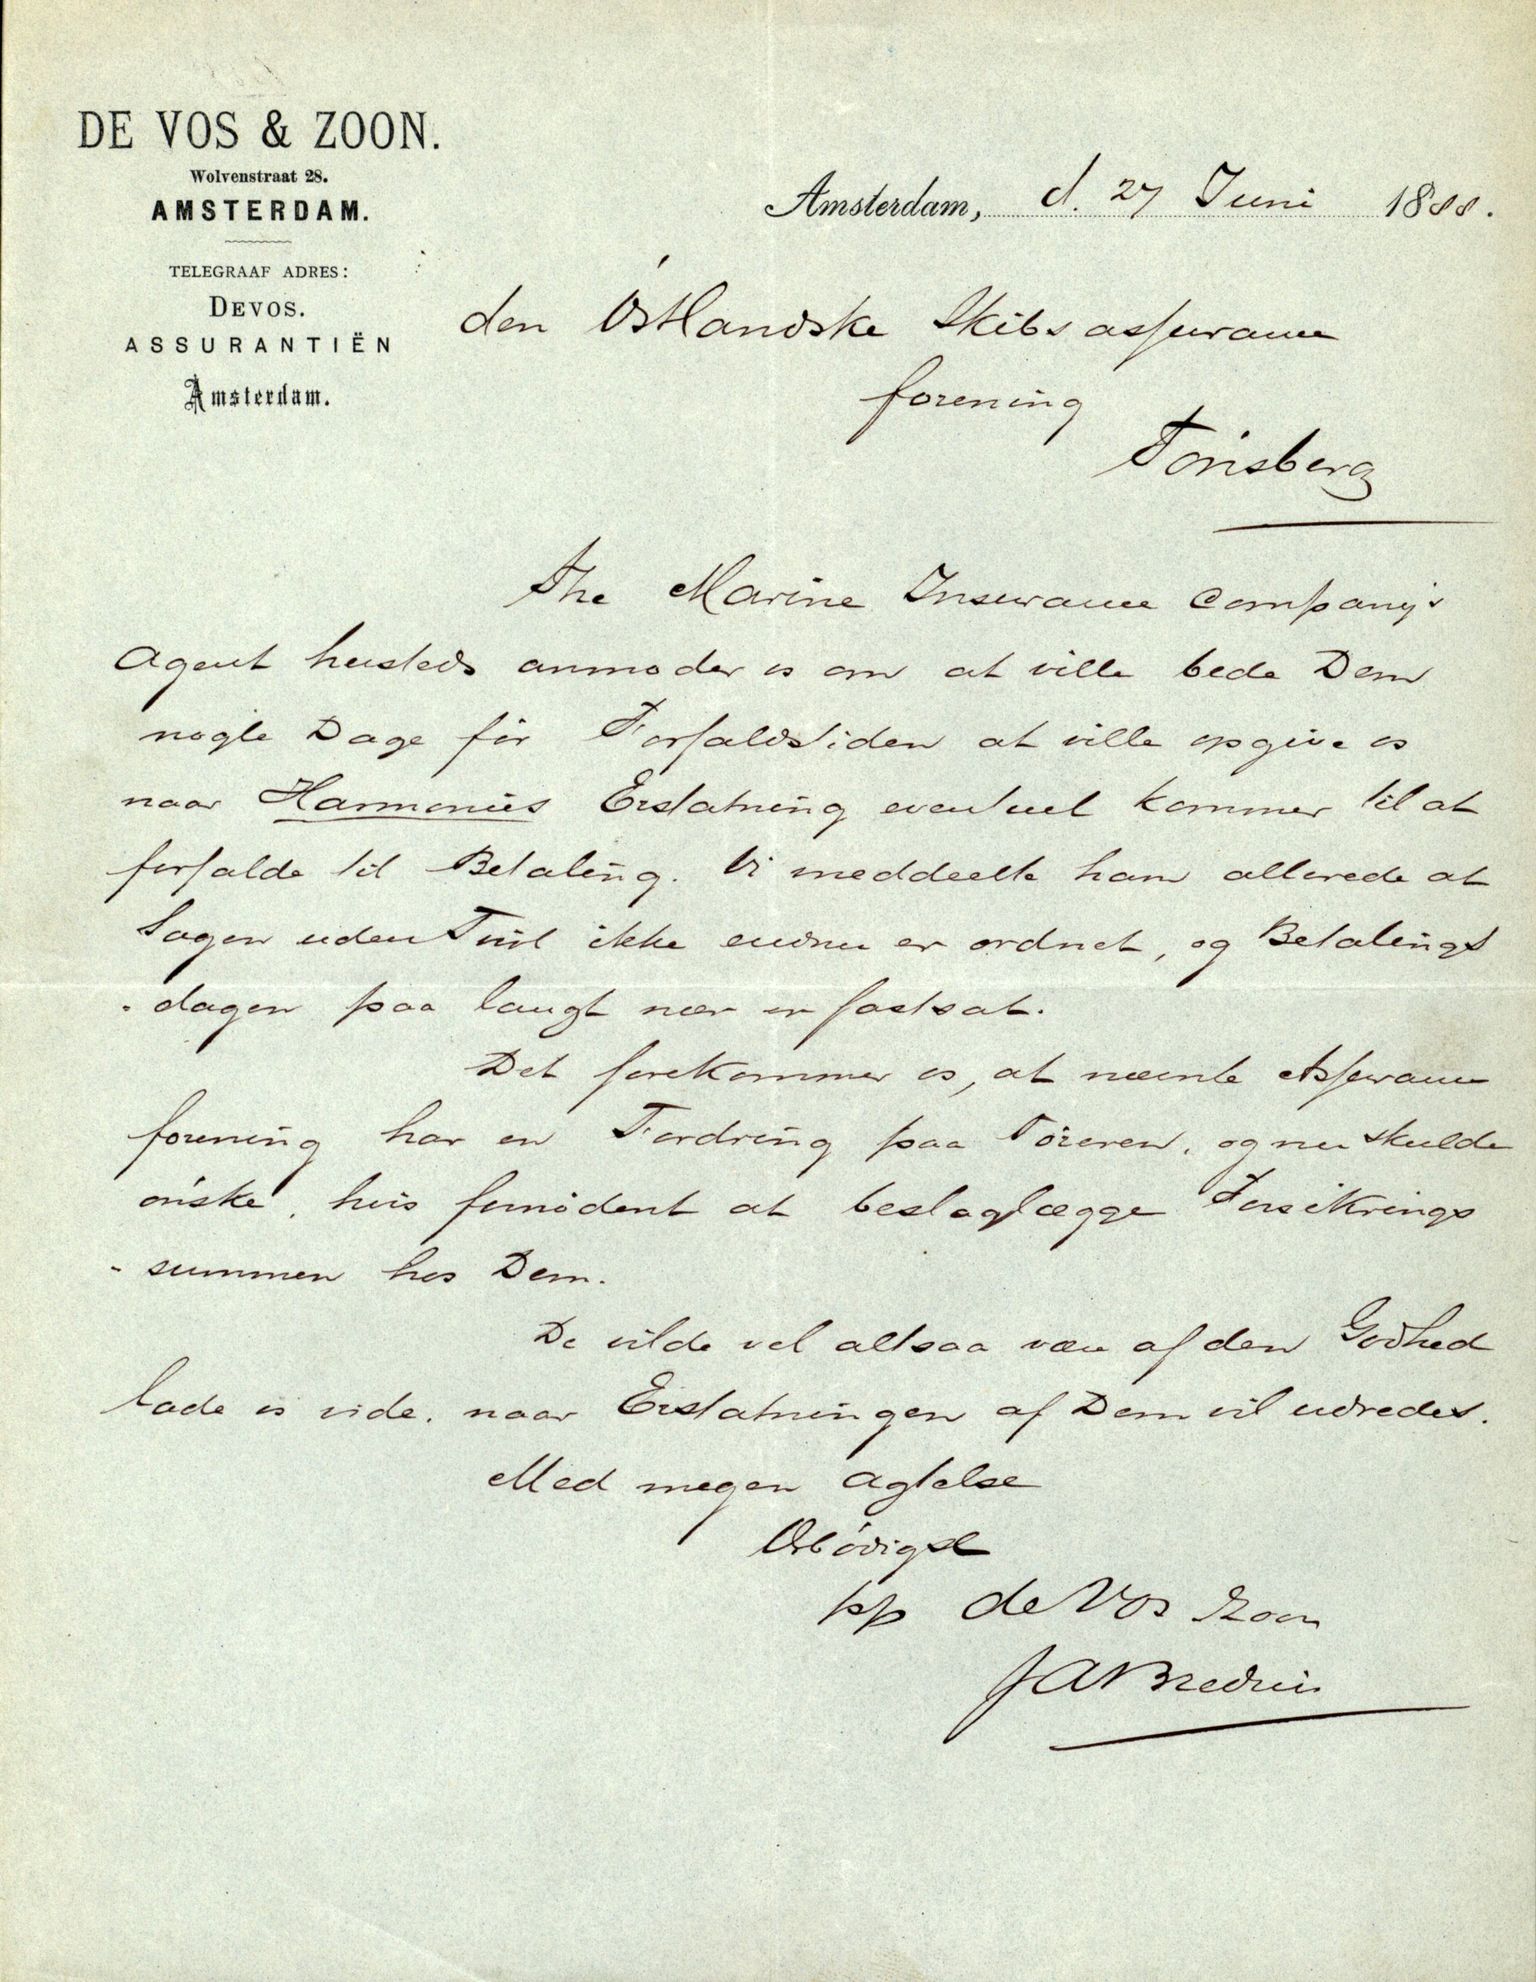 DE VOS & ZOON.
Wolvenstraat 28.
AMSTERDAM.
TELEGRAAF ADRES:
DEVOS.
ASSURANTIËN
Amsterdam.
Amsterdam, d. 27 Juni 1888.
den Östlandske Skibsassurance
forening
Tönsberg
The Marine Insurance Company's
Agent hersteds anmoder os om at ville bede Dem
nogle Dage för Forfaldstiden at ville opgive os
naar Harmonies Erstatning eventuel kommer til at
forfalde til Betaling. Vi meddeelte ham allerede at
Sagen uden Tvivl ikke endnu er ordnet, og Betalings
-dagen paa langt nær er fastsat.
Det forekommer os, at nævnte Assurance
forening har en Fordring paa Föreren, og nu skulde
önske, hvis fornödent at beslaglægge Forsikrings
-summen hos Dem.
De vilde vel altsaa være af den Godhed
lade os vide, naar Erstatningen af Dem vil udredes.
Med megen Agtelse
Ærbödigst
pp de Vos & Zoon